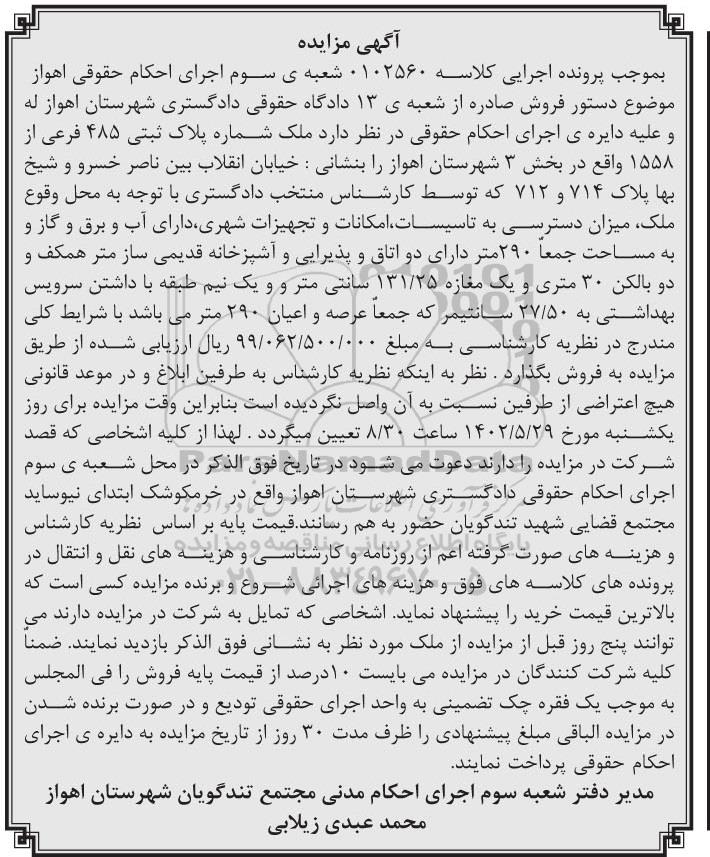 آگهی مزایده
بموجب پرونده اجرایی کلاسه ۰۱۰۲۵۶۰ شعبه ی سوم اجرای احکام حقوقی اهواز
موضوع دستور فروش صادره از شعبه ی ۱۳ دادگاه حقوقی دادگستری شهرستان اهواز له
و علیه دایره ی اجرای احکام حقوقی در نظر دارد ملک شماره پلاک ثبتی ۴۸۵ فرعی از
۱۵۵۸ واقع در بخش ۳ شهرستان اهواز را بنشانی : خیابان انقلاب بین ناصر خسرو و شیخ
بها پلاک ۷۱۴ و ۷۱۲ که توسط کارشناس منتخب دادگستری با توجه به محل وقوع
ملک، میزان دسترسی به تاسیسات،امکانات و تجهیزات شهری،دارای آب و برق و گاز و
به مساحت جمعاً ۲۹۰متر دارای دو اتاق و پذیرایی و آشپزخانه قدیمی ساز متر همکف و
دو بالکن ۳۰ متری و یک مغازه ۱۳۱/۲۵ سانتی متر و و یک نیم طبقه با داشتن سرویس
بهداشتی به ۲۷/۵۰ سانتیمر که جمعاً عرصه و اعیان ۲۹۰ متر می باشد با شرایط کلی
مندرج در نظریه کارشناسی به مبلغ ۹۹/۰۶۲/۵۰۰/۰۰۰ ریال ارزیابی شده از طریق
مزایده به فروش بگذارد . نظر به اینکه نظریه کارشناس به طرفین ابلاغ و در موعد قانونی
هیچ اعتراضی از طرفین نسبت به آن واصل نگردیده است بنابراین وقت مزایده برای روز
یکشنبه مورخ ۱۴۰۲/۵/۲۹ ساعت ۸/۳۰ تعیین میگردد . لهذا از کلیه اشخاصی که قصد
شرکت در مزایده را دارند دعوت می شود در تاریخ فوق الذکر در محل شعبه ی سوم
اجرای احکام حقوقی دادگستری شهرستان اهواز واقع در خرمکوشک ابتدای نیوساید
مجتمع قضایی شهید تندگویان حضور به هم رسانند.قیمت پایه بر اساس نظریه کارشناس
و هزینه های صورت گرفته اعم از روزنامه و کارشناسی و هزینه های نقل و انتقال در
پرونده های کلاسه های فوق و هزینه های اجرائی شروع و برنده مزایده کسی است که
بالاترین قیمت خرید را پیشنهاد نماید. اشخاصی که تمایل به شرکت در مزایده دارند می
توانند پنج روز قبل از مزایده از ملک مورد نظر به نشانی فوق الذکر بازدید نمایند. ضمناً
کلیه شرکت کنندگان در مزایده می بایست ۱۰درصد از قیمت پایه فروش را فی المجلس
به موجب یک فقره چک تضمینی به واحد اجرای حقوقی تودیع و در صورت برنده شدن
در مزایده الباقی مبلغ پیشنهادی را ظرف مدت ۳۰ روز از تاریخ مزایده به دایره ی اجرای
احکام حقوقی پرداخت نمایند.
مدیر دفتر شعبه سوم اجرای احکام مدنی مجتمع تندگویان شهرستان اهواز
محمد عبدی زیلابی
ParsNamadData
پایگاه اطلاع رسانی مناقصه و مزایده
۰۲۱-۸۸۳۴۹۶۷۰-۵